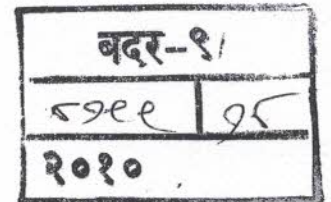 बदर--९/
८१९९ १८
२०१०